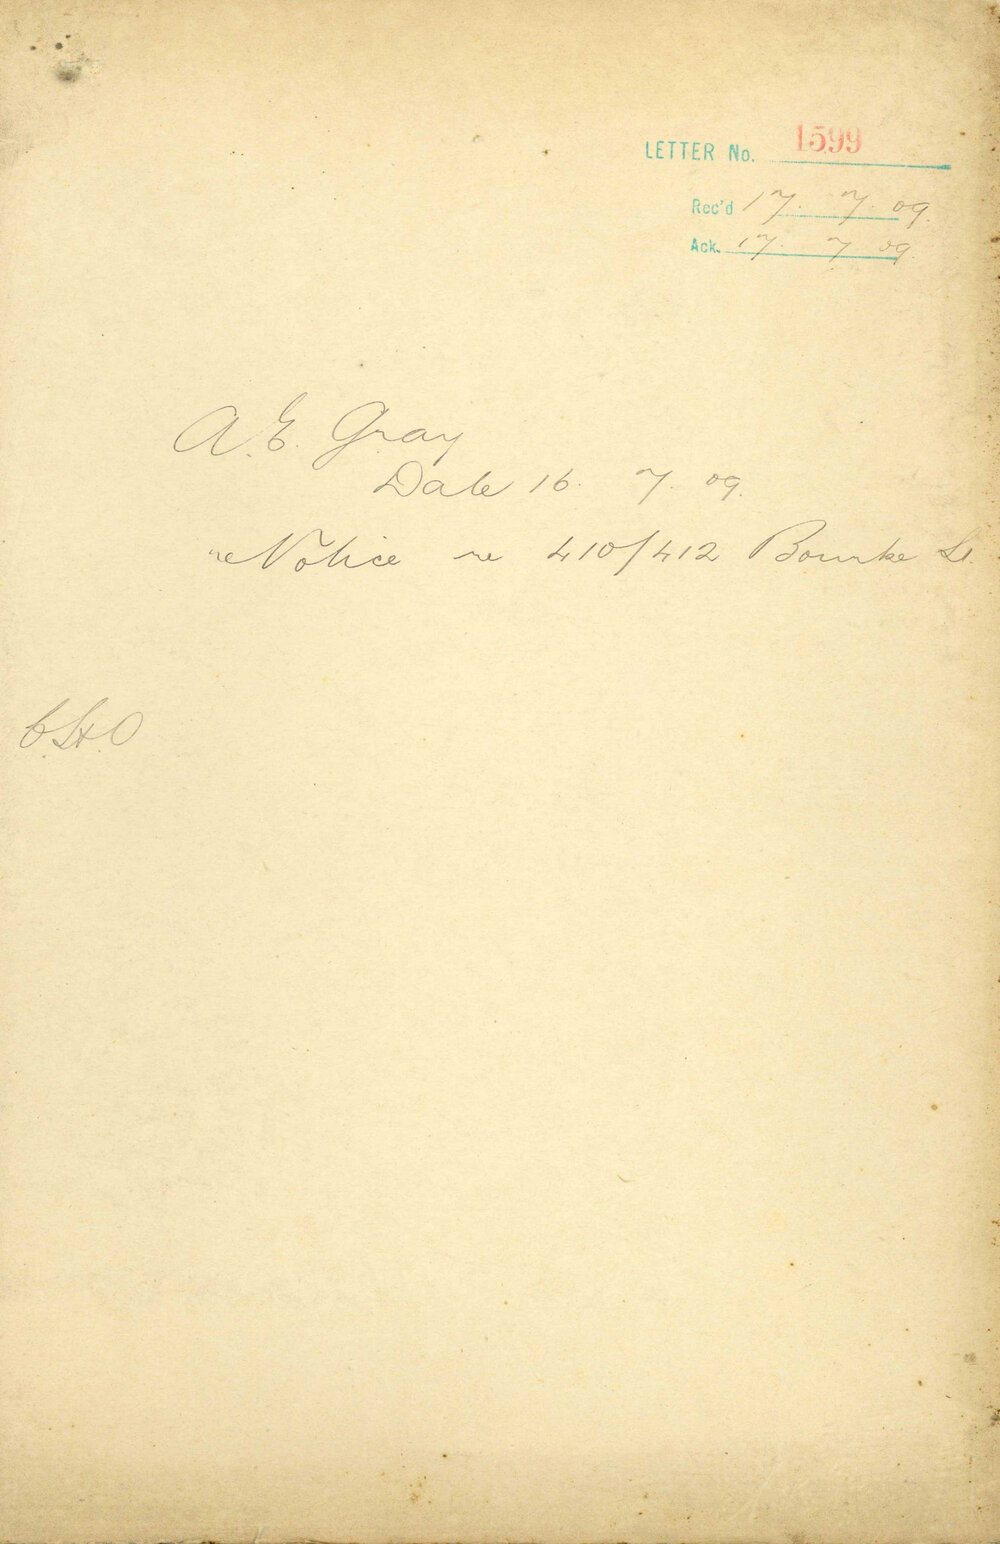 LETTER No. 1599
Rec'd 17. 7. 09.
Ack. 17. 7 09.
A. E. Gray
Date 16. 7. 09.
re Notice re 410/412 Bourke St.